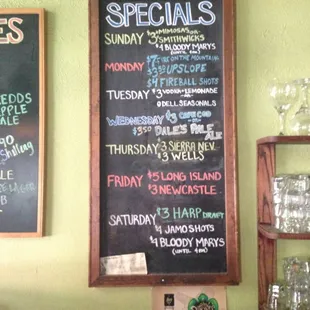 SPECIALS
SUNDAY $3 MIMOSAS OR
SMITHWICKS
$4 BLOODY MARYS
MONDAY $7 FIRE ON THE MOUNTAIN
UPSLOPE
$4 FIREBALL SHOTS
TUESDAY $3 VODKA-LEMONADE
ODELL SEASONALS
WEDNESDAY $3 CAPE COD
OR
$3.50 DALE'S PALE
ALE
THURSDAY $3 SIERRA NEV.
$3 WELLS
FRIDAY $5 LONG ISLAND
$3 NEWCASTLE
SATURDAY $3 HARP DRAFT
$4 JAMO SHOTS
$4 BLOODY MARYS
(UNTIL 4PM)
ES
REDDS
APPLE
ALE